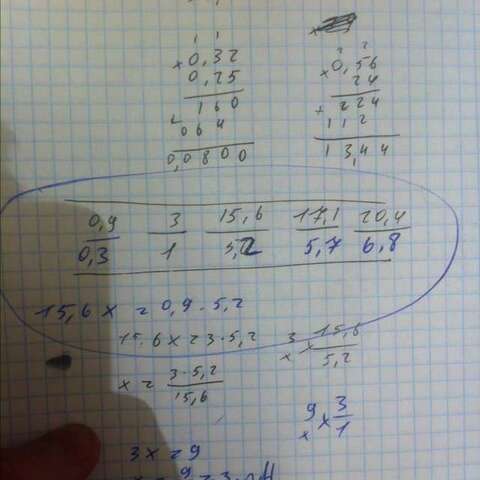 1 1
× 0,32
0,25
160
+
064
0,0800
2 2
× 0,56
24
+ 224
112
13,44
0,9 3 15,6 17,1 20,4
0,3 1 5,2 5,7 6,8
15,6 x = 0,9 · 5,2
15,6 x = 3 · 5,2
x = 3 · 5,2
15,6
3 15,6
x × 5,2
9 × 3
x 1
3x = 9